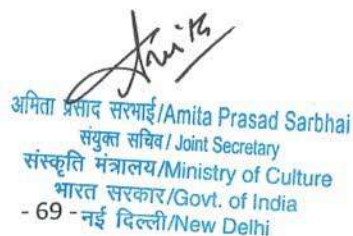 Amita
अमिता प्रसाद सरभाई/Amita Prasad Sarbhai
संयुक्त सचिव/ Joint Secretary
संस्कृति मंत्रालय/Ministry of Culture
भारत सरकार/Govt. of India
- 69 -
नई दिल्ली/New Delhi